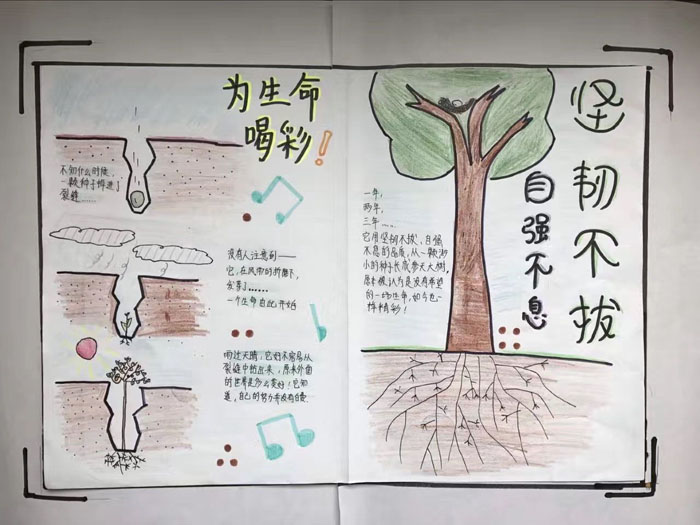 为生命
喝彩！
不知什么时候，
一颗种子掉进了
裂缝……
没有人注意到——
它，在风雨的折磨下，
发芽了……
一个生命自此开始
雨过天晴，它好不容易从
裂缝中钻出来，原来外面
的世界是多么美好！它知
道，自己的努力并没有白费。
坚韧不拔
自强不息
一年，
两年，
三年……
它用坚韧不拔、自强
不息的品质，从一颗渺
小的种子长成参天大树。
原来被认为是没有希望
的一场生命，如今也一
样精彩！